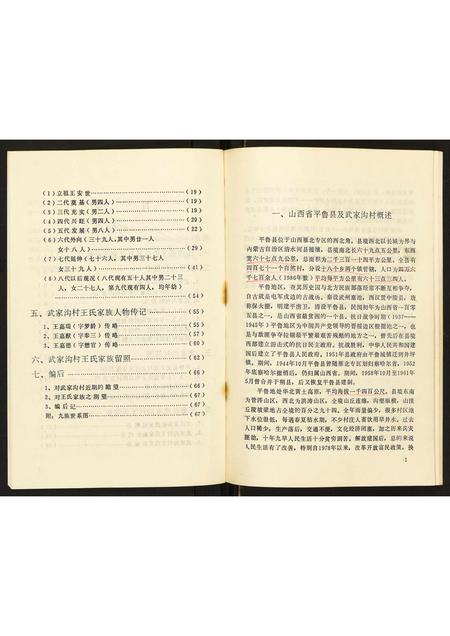 (1)立祖王安世……(19)
(2)二代奠基(男四人)……(19)
(3)三代充实(男二人)……(19)
(4)四代兴旺(男四人)……(20)
(5)五代发展(男八人)……(22)
(6)六代外向(三十九人,其中男廿一人
女十八人)……(29)
(7)七代延伸(七十六人,其中男三十七人
女三十九人)……(41)
(8)八代以后概况(八代现有五十人其中男二十三
人,女二十七人,第九代现有四人,均年幼)
……(54)
五、武家沟村王氏家族人物传记……(55)
1、王嘉瑞(字梦龄)传略……(55)
2、王嘉猷(字奉三)传略……(57)
3、王嘉德(字懋官)传略……(60)
六、武家沟村王氏家族留照……(62)
七、编后……(66)
1、对武家沟村近期的瞻望……(66)
2、对王氏家族之期望……(67)
3、编后记……(67)
附,九族世系图……(67)
一、山西省平鲁县及武家沟村概述
平鲁县位于山西雁北专区的西北角,县境西北以长城为界与
内蒙古自治区清水河县接壤,县境南北长六十九点五公里,东西
宽六十七点九公里,总面积二千三百一十四平方公里,全县有
四百七十一个自然村,分设十八个乡两个镇管辖,人口为四万六
千七百余人(1986年数)平均每平方公里有六十三点三四人。
平鲁地区,查其历史因与北方民族部落经常不断互相争夺,
自古就是屯军戍边的古战场。秦设武州塞地,西汉置中陵县,唐
称保大栅,明建平虏卫,清设平鲁县,民国初年,全县分一百零
五县之一,是山西省最贫困的一个县。抗日战争时期(1937——
1945年)平鲁地区为中国共产党领导的晋绥边区根据地之一,也
是与敌潴争夺拉锯最平繁最艰苦残酷的地方之一,曾先后在县境
西部建立游击式的抗日民主政府。抗战胜利,中华人民共和国建
国后建立了平鲁县人民政府。1951年县政府由平鲁城镇迁到井坪
镇。期间,1949年曾将平鲁雁北专区划归察哈尔省,1952
年底察哈尔撤销后,仍归属山西省。期间,1958年10月至1961年
5月曾合并于朔县,后又恢复平鲁县建制。
平鲁地处华北黄土高原,平均海拔一千四百公尺,县境东南
为管涔山区,西北为洪涛山区,全境山丘连绵,沟壑纵横,山丘
丘陵坡梁地占全境的百分之九十四。全年雨量偏少,很多村区地
下水位很低,每遇春夏枯水期,不少村庄人畜饮用旱井水。过去
人口稀少,生产落后,交通不便,文化经济闭塞,加之历来兵灾
匪劫,十年九旱人民生活十分贫穷困苦。解放建国后,总的来说
人民生活有了改善,特别自1978年以来,改革开放富民政策,换
1